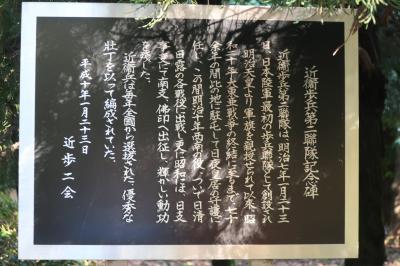 近衛歩兵第二聯隊記念碑
近衛歩兵第二聯隊は、明治七年一月二十三
日、日本陸軍最初の歩兵聯隊として創設され
明治天皇より軍旗を親授せられて以来、昭
和二十年大東亜戦争の終結に至るまで七十
余年の間此の地に駐屯して日夜皇居の守護に
任じ、この間明治十年西南の役、ついで日清
日露の各戦役に出戦し、更に昭和には、日支
事変にて南支、佛印へ出征し、輝かしい勲功
を残した。
近衛兵は毎年全国から選抜された、優秀な
壮丁を以って編成されていた。
平成十年一月二十三日
近歩二会